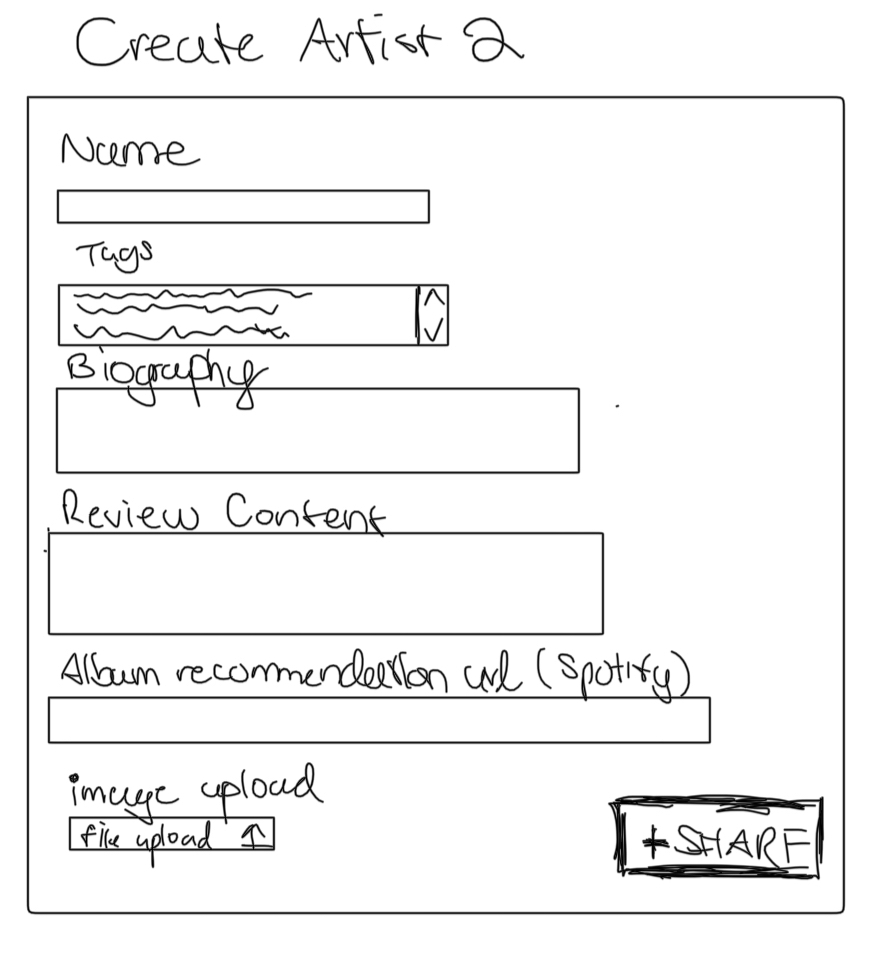 Create Artist 2
Name
Tags
Biography
Review Content
Album recommendation url (Spotify)
image upload
file upload
+SHARE